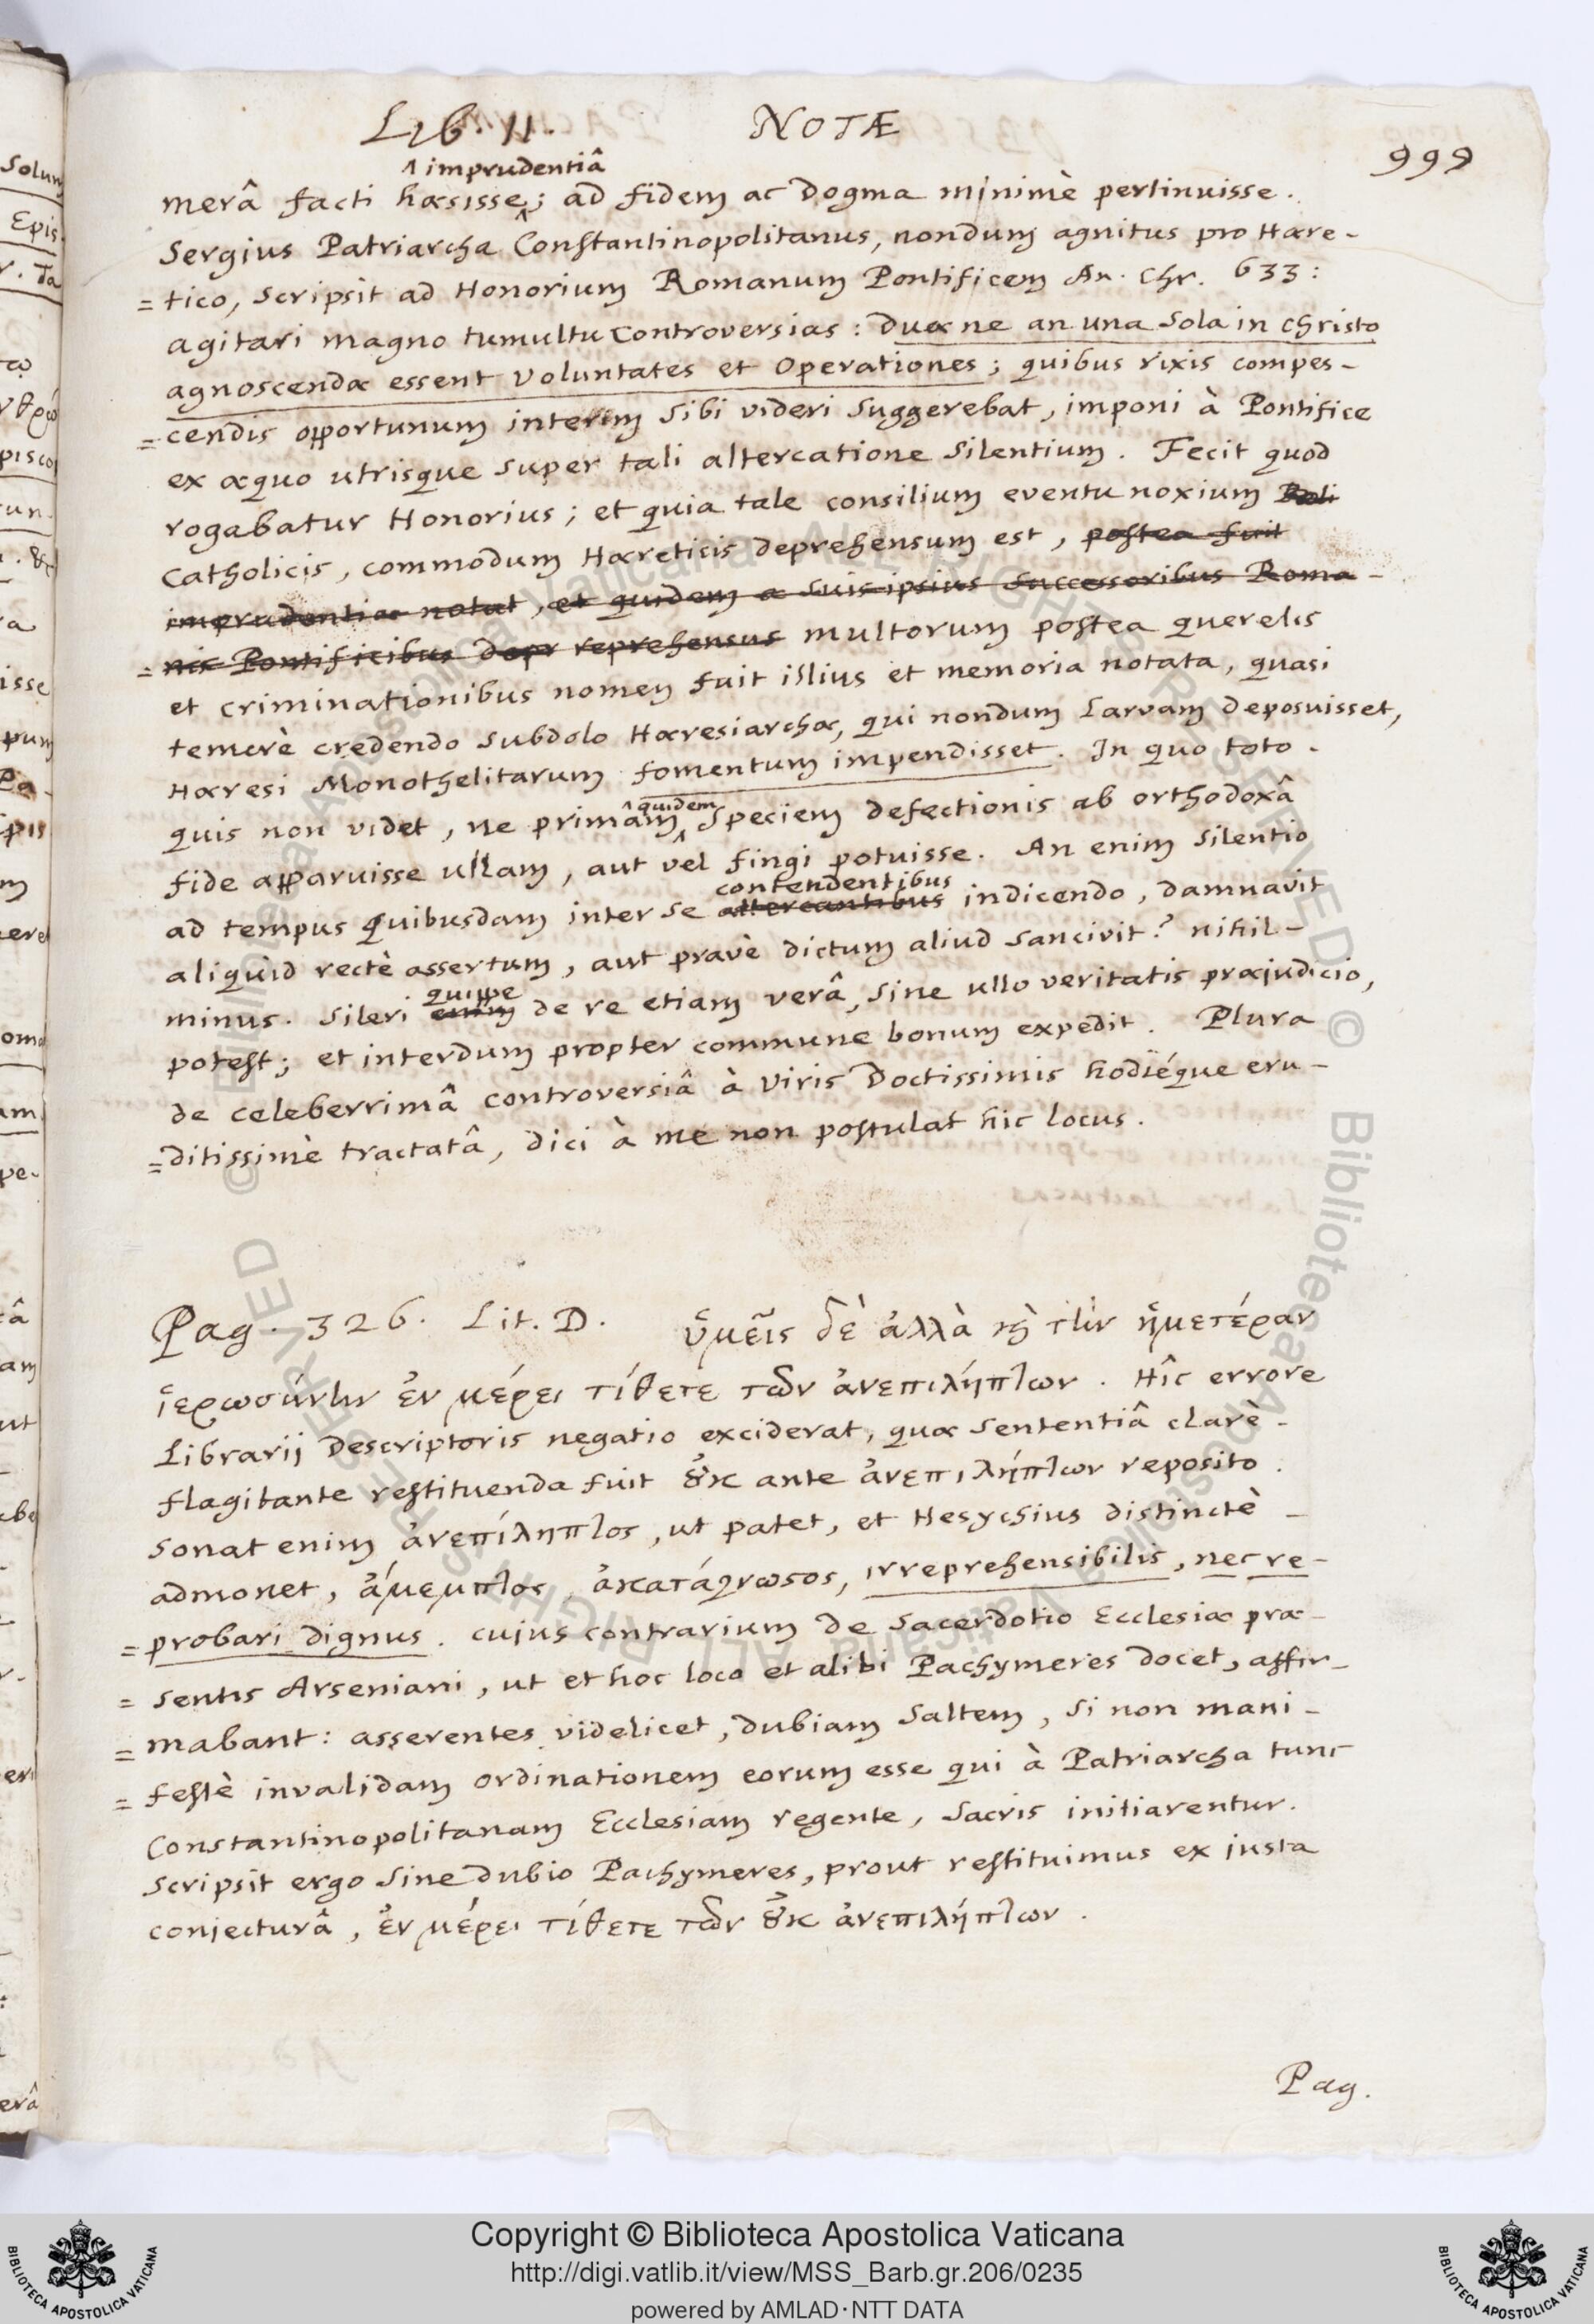 Lib. II. NOTÆ
999
^ imprudentiâ
merâ facti hæsisse; ad fidem ac Dogma minimè pertinuisse.
Sergius Patriarcha Constantinopolitanus, nondum agnitus pro Hære-
=tico, scripsit ad Honorium Romanum Pontificem An. Chr. 633:
agitari magno tumultu Controversias: Duæ ne an una sola in christo
agnoscendæ essent Voluntates et Operationes; quibus rixis compes-
=cendis opportunum interim sibi videri suggerebat, imponi à Pontifice
ex æquo utrisque super tali altercatione silentium. Fecit quod
rogabatur Honorius; et quia tale consilium eventu noxium
Catholicis, commodum Hæreticis deprehensum est, postea fuit
imprudentiæ notat, et quidem a suis ipsius successoribus Roma-
=nis Pontificibus depr reprehensus multorum postea querelis
et criminationibus nomen fuit illius et memoria notata, quasi
temerè credendo subdolo Hæresiarchæ, qui nondum larvam deposuisset,
Hæresi Monothelitarum fomentum impendisset. In quo toto
quidem
quis non videt, ne primam speciem defectionis ab orthodoxâ
fide apparuisse ullam, aut vel fingi potuisse. An enim silentio
contendentibus
ad tempus quibusdam inter se altercantibus indicendo, damnavit
aliquid rectè assertum, aut pravè dictum aliud sancivit? nihil-
quippe
minus. Sileri enim de re etiam verâ, sine ullo veritatis præjudicio,
potest; et interdum propter commune bonum expedit. Plura
de celeberrimâ controversiâ à Viris Doctissimis hodiéque eru-
=ditissimè tractatâ, dici à me non postulat hic locus.
Pag. 326. Lit. D. ὑμεῖς δὲ ἀλλὰ καὶ τὴν ἡμετέραν
ἱερωσύνην ἐν μέρει τίθετε τῶν ἀνεπιλήπτων. Hîc errore
Librarij Descriptoris negatio exciderat, quæ sententiâ clarè
flagitante restituenda fuit οὐκ ante ἀνεπιλήπτων reposito.
sonat enim ἀνεπίληπτος, ut patet, et Hesychius distinctè
admonet, ἄμεμπτος, ἀκατάγνωσος, irreprehensibilis, nec re-
=probari dignus. cujus contrarium de Sacerdotio Ecclesiæ præ-
=sentis Arseniani, ut et hoc loco et alibi Pachymeres docet, affir-
=mabant: asserentes videlicet, dubiam saltem, si non mani-
=festè invalidam ordinationem eorum esse qui à Patriarcha tunc
Constantinopolitanam Ecclesiam regente, Sacris initiarentur.
Scripsit ergo sine dubio Pachymeres, prout restituimus ex justa
conjecturâ, ἐν μέρει τίθετε τῶν οὐκ ἀνεπιλήπτων.
Pag.
Copyright © Biblioteca Apostolica Vaticana
http://digi.vatlib.it/view/MSS_Barb.gr.206/0235
powered by AMLAD·NTT DATA